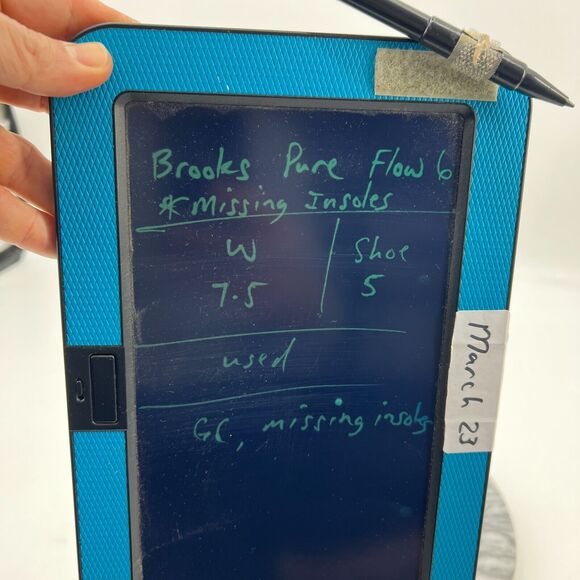 Brooks Pure Flow 6
*Missing Insoles
W Shoe
7.5 5
used
GC, missing insoles
March 23